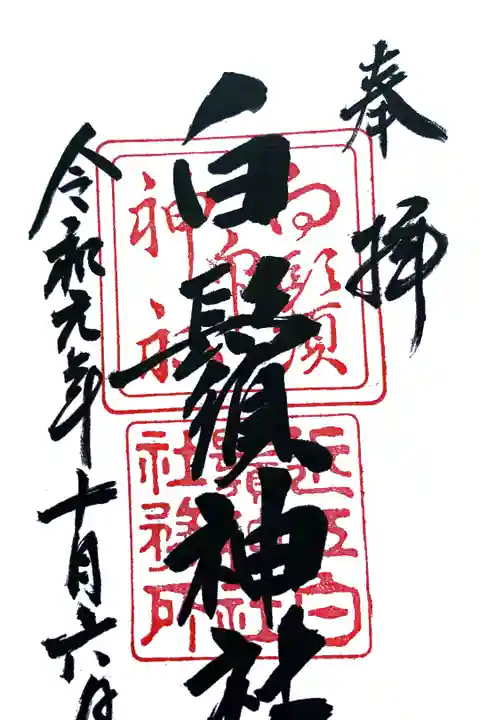 奉拝
白鬚神社
令和元年十月六日
近江白
鬚神社
社務所